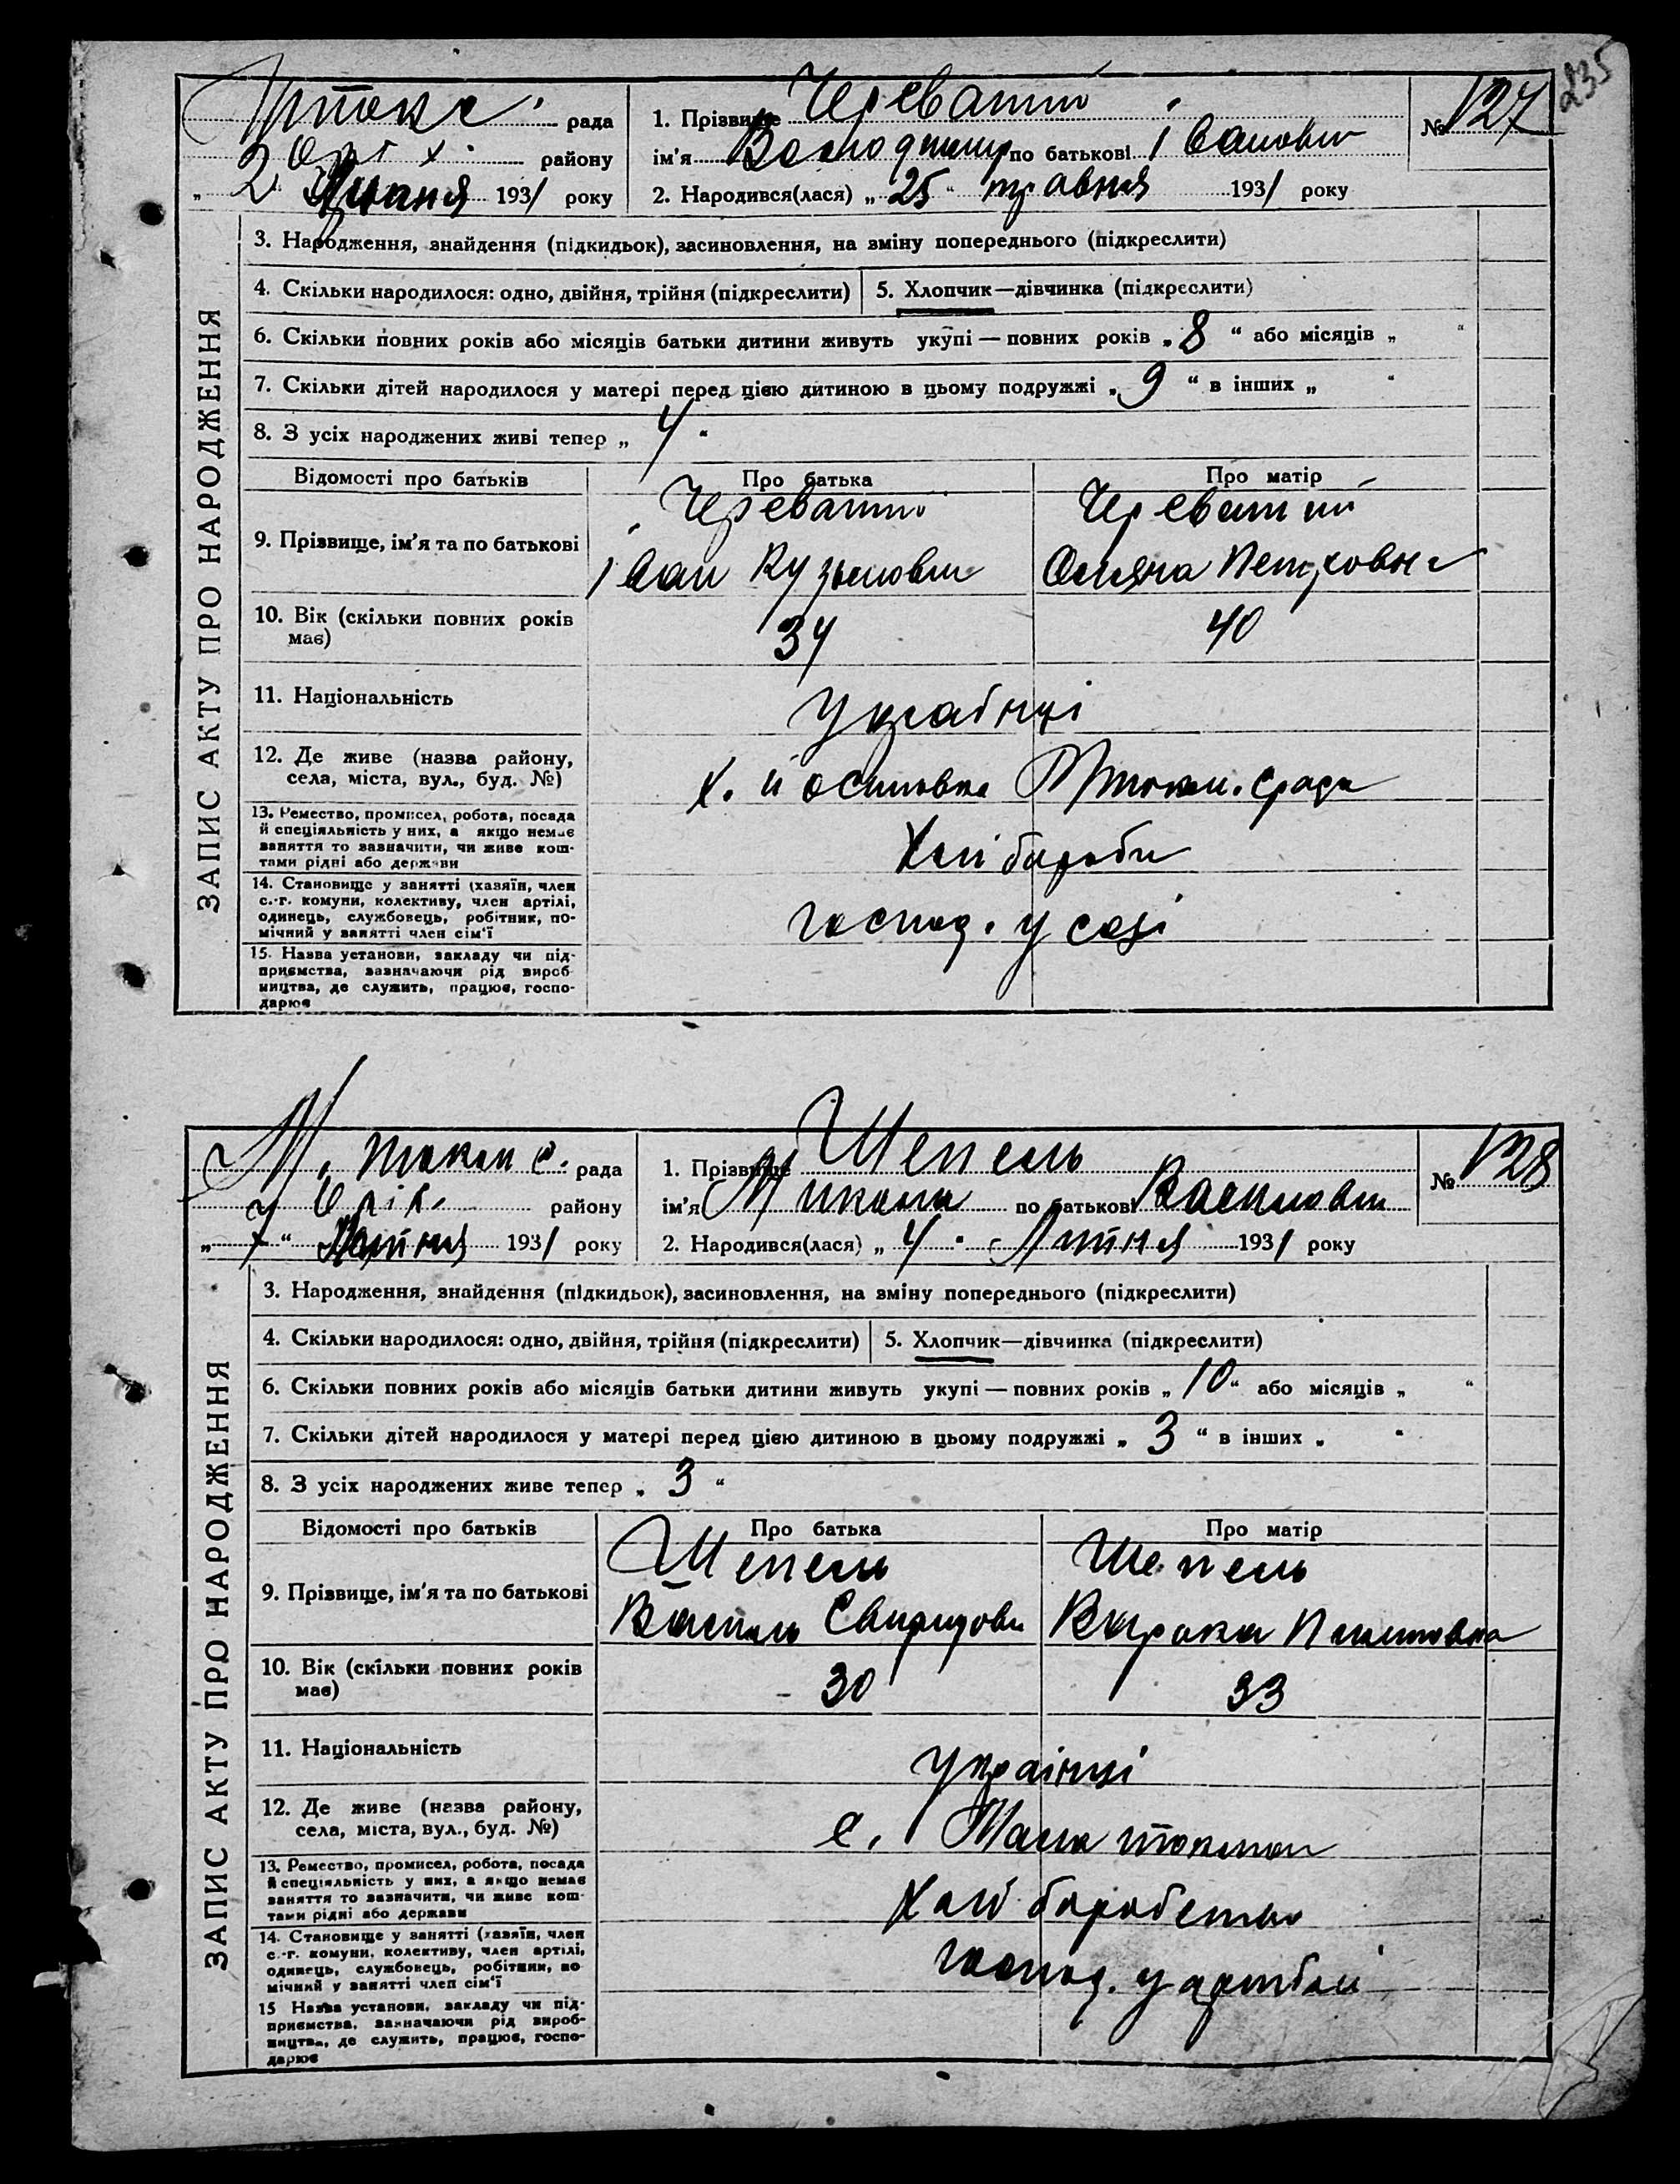 235
рада
1. Прізвище Череватий
№ 127
району
ім'я Володимир по батькові Іванович
" 2 " 1931 року
2. Народився(лася) „ 25 " травня 1931 року
ЗАПИС АКТУ ПРО НАРОДЖЕННЯ
3. Народження, знайдення (підкидьок), засиновлення, на зміну попереднього (підкреслити)
4. Скільки народилося: одно, двійня, трійня (підкреслити)
5. Хлопчик—дівчинка (підкреслити)
6. Скільки повних років або місяців батьки дитини живуть укупі — повних років „ 8 " або місяців „ "
7. Скільки дітей народилося у матері перед цією дитиною в цьому подружжі „ 9 " в інших „ "
8. З усіх народжених живі тепер „ 4 "
Відомості про батьків
Про батька
Про матір
9. Прізвище, ім'я та по батькові
Череватий
Іван Кузьмович
Череватий
Оляна Петровна
10. Вік (скільки повних років
має)
34
40
11. Національність
Українці
12. Де живе (назва району,
села, міста, вул., буд. №)
х. Йосиповка
13. Ремество, промисел, робота, посада
й спеціяльність у них, а якщо немає
заняття то зазначити, чи живе кош-
тами рідні або держави
Хліборби
14. Становище у занятті (хазяїн, член
с.-г. комуни, колективу, член артілі,
одинець, службовець, робітник, по-
мічний у занятті член сім'ї
господ. у созі
15. Назва установи, закладу чи під-
приємства, зазначаючи рід вироб-
ництва, де служить, працює, госпо-
дарює
М. токм с. рада
1. Прізвище Шепель
№ 128
району
ім'я Микола по батькові Василович
„ 7 " 1931 року
2. Народився(лася) „ 4 " Липня 1931 року
ЗАПИС АКТУ ПРО НАРОДЖЕННЯ
3. Народження, знайдення (підкидьок), засиновлення, на зміну попереднього (підкреслити)
4. Скільки народилося: одно, двійня, трійня (підкреслити)
5. Хлопчик—дівчинка (підкреслити)
6. Скільки повних років або місяців батьки дитини живуть укупі — повних років „ 10 " або місяців „ "
7. Скільки дітей народилося у матері перед цією дитиною в цьому подружжі „ 3 " в інших „ "
8. З усіх народжених живе тепер „ 3 "
Відомості про батьків
Про батька
Про матір
9. Прізвище, ім'я та по батькові
Шепель
Василь Свиридови
Шепель
10. Вік (скільки повних років
має)
30
33
11. Національність
українці
12. Де живе (назва району,
села, міста, вул., буд. №)
с. Мала токмач
13. Ремество, промисел, робота, посада
й спеціяльність у них, а якщо немає
заняття то зазначити, чи живе кош-
тами рідні або держави
14. Становище у занятті (хазяїн, член
с.-г. комуни, колективу, член артілі,
одинець, службовець, робітник, по-
мічний у занятті член сім'ї
господ. у артілі
15 Назва установи, закладу чи під-
приємства, зазначаючи рід вироб-
ництва, де служить, працює, госпо-
дарює